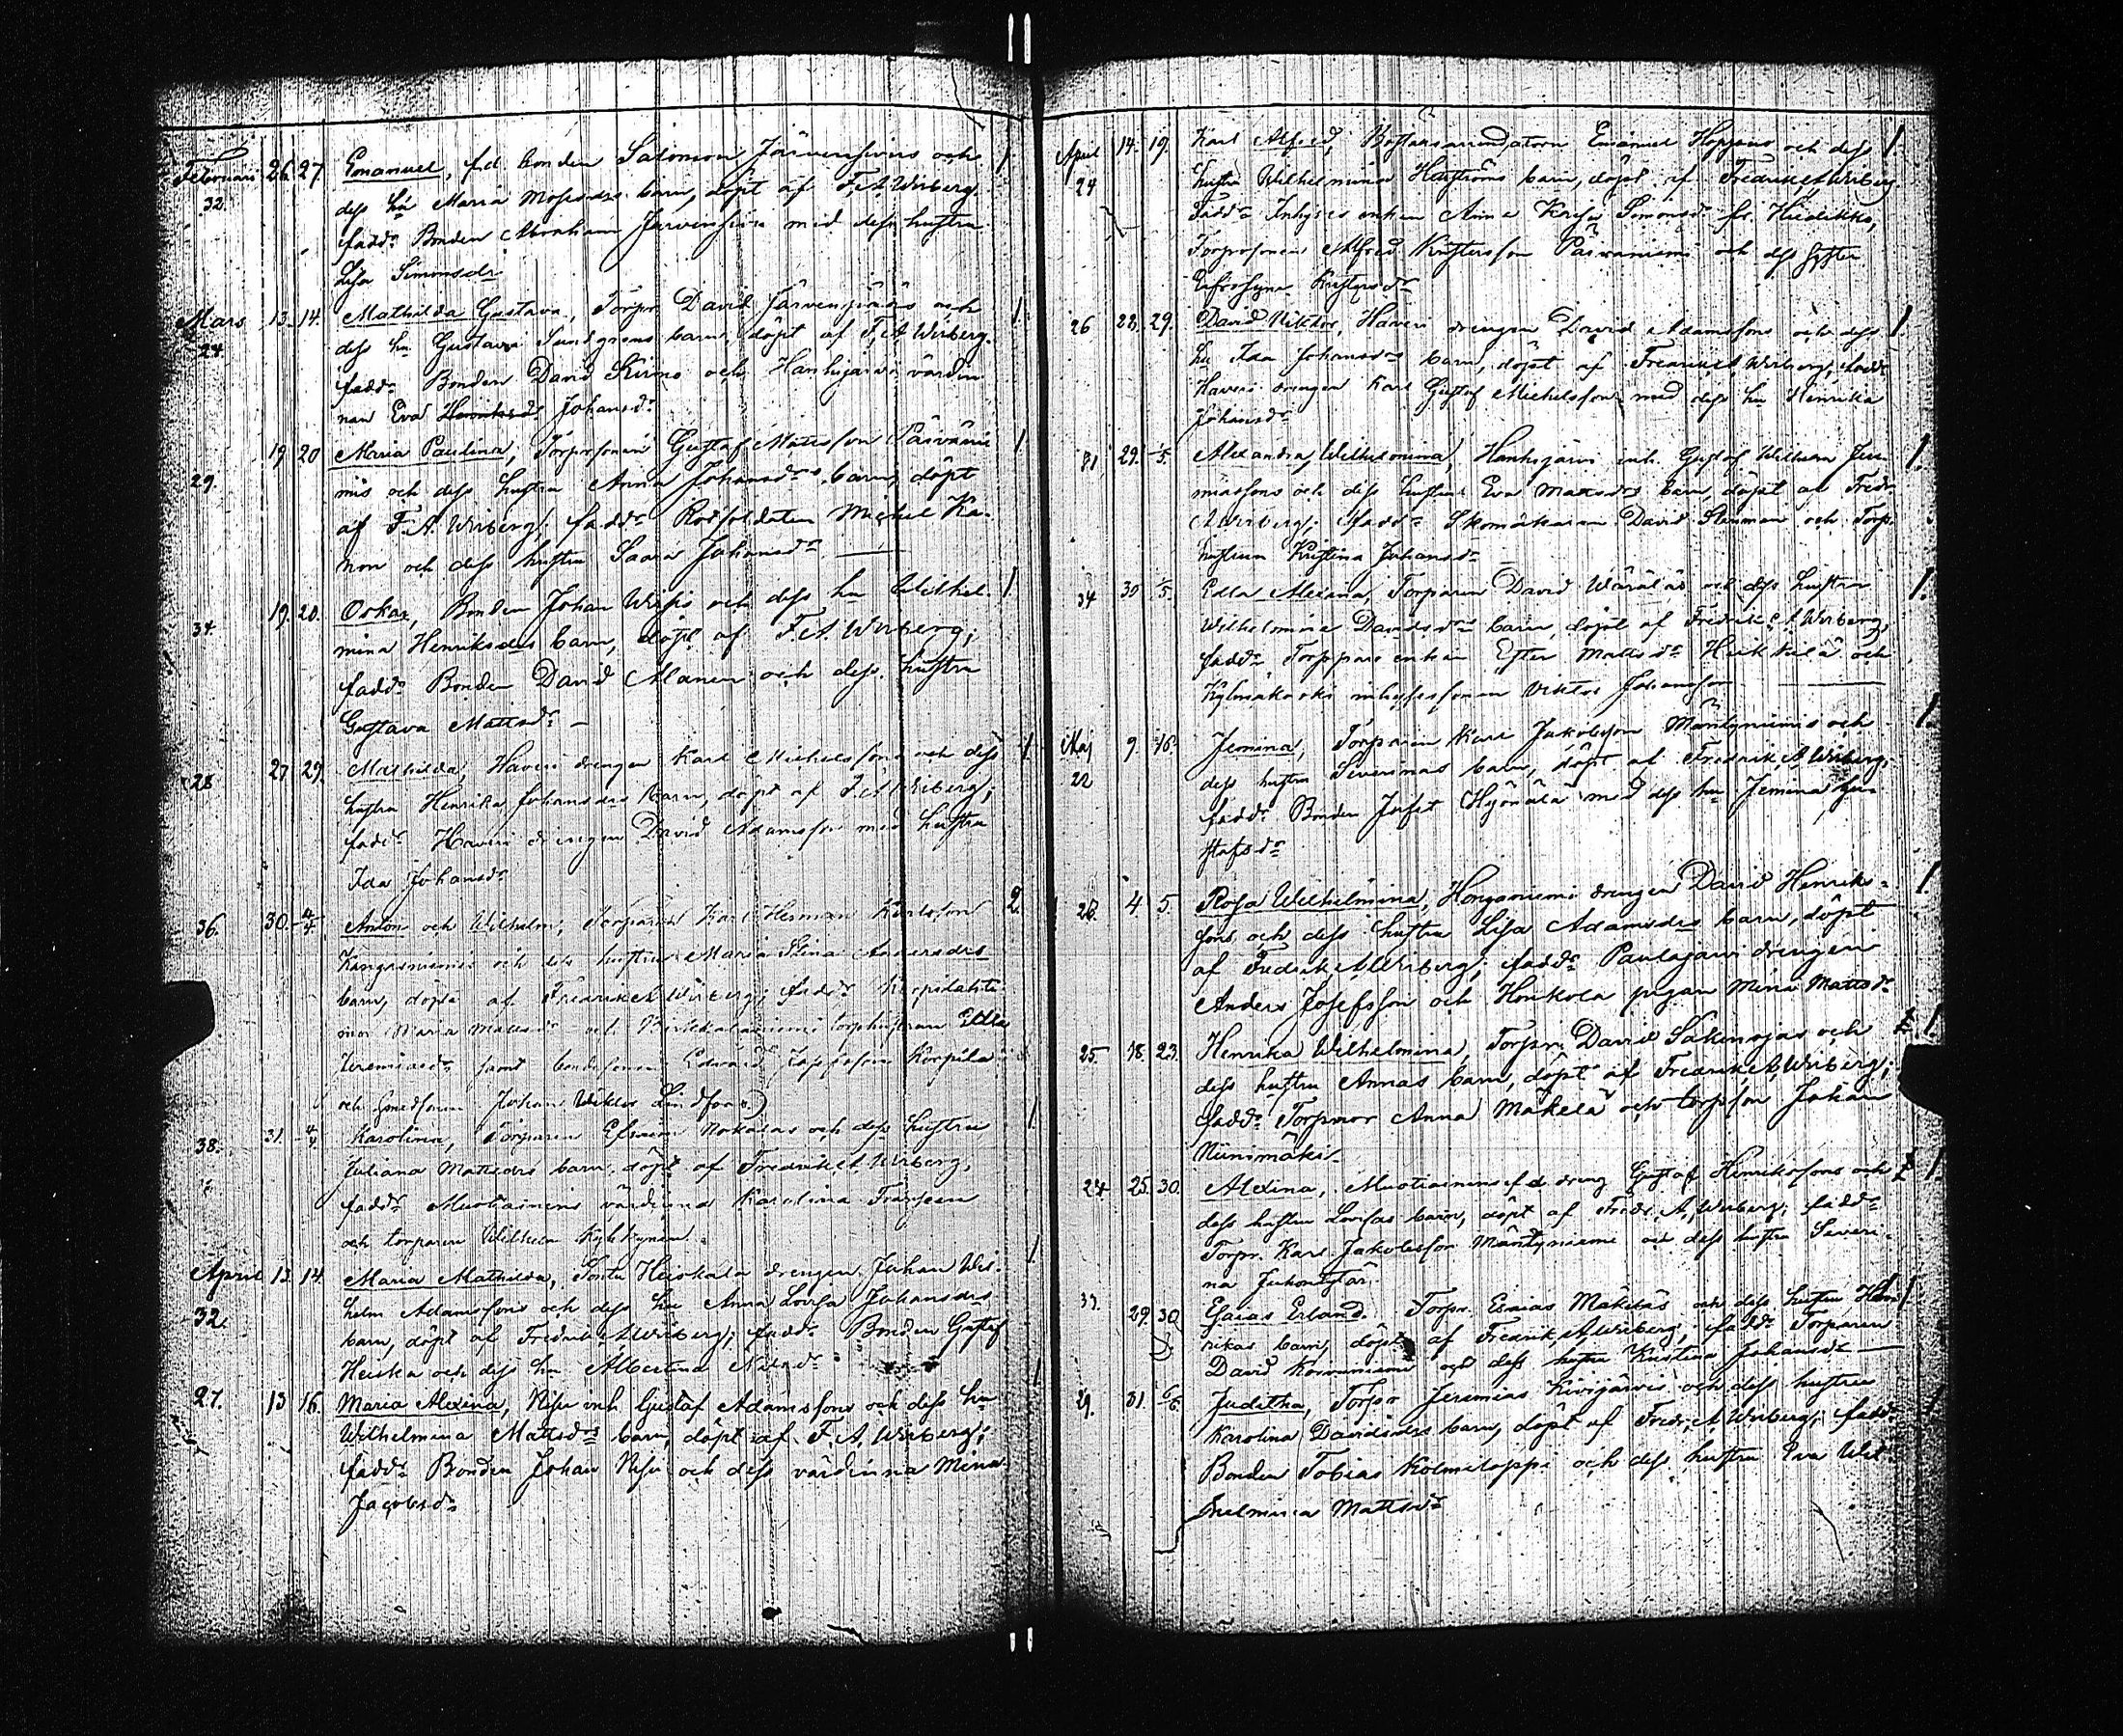 Februari 26. 27 Emanuel, f.d. bonden Salomon Järvensivus och 1.
32. dess hu Maria Mosesdrs barn, döpt af F. A. Wiberg.
fadd. Bonden Abraham Järvensivu med dess hustru
Lisa Simonsdr
Mars 13. 14. Mathilda Gustava, Torpr. David Järvenpääs och 1.
24. dess hu Gustava Sundgrens barn, döpt af F. A. Wiberg.
fadd. Bonden David och Hanhijärvi värdin
nan Eva Johansdr
19 20 Maria Paulina, Torparsonen Gustaf Mattsson Päivänie 1
29. mis och dess hustru Anna Johansdrs barn, döpt
af F. A. Wiberg; fadd. Rotsoldaten Michel Ka-
non och dess hustru Saara Johansdr
19. 20. Oskar, Bonden Johan och dess hu Wilhel- 1.
34. mina Henriksdrs barn, döpt af F. A. Wiberg;
fadd. Bonden David Alanen och dess hustru
Gustava Mattsdr
27 29. Mathilda, Haveri drengen Karl Michelssons och dess 1
28 hustru Henrika Johansdrs barn, döpt af F. A. Wiberg;
fadd. Haveri drengen David Adamsson med hustru
Ida Johansdr
36. 30. 4/4. Anton och Wilhelm, Torparen Karl Herman Karlsson 2.
Kangasniemis och dess hustru Maria Stina Andersdrs
barn, döpta af Fredrik A. Wiberg; fadd.
mor Maria Mattsdr och torphustrun Edla
Jeremiasdr samt bondesonen Edvard Korpela
och smedsonen Johan Wiktor Lindfors
38. 31. 4/4 Karolina, Torparen Efraim Nokasas och dess hustru 1
Juliana Mattsdrs barn, döpt af Fredrik A. Wiberg,
fadd. Muotiainens värdinna Karolina Fransson
och torparen Wilhelm
April 13. 14. Maria Mathilda, Heiskala drengen Johan Wil- 1
32. helm Adamssons och dess hu Anna Lovisa Johansdrs
barn, döpt af Fredrik A. Wiberg; fadd. Bonden Gustaf
Heiska och dess hu Albertina Nilsdr
27. 13 16. Maria Alexina, Risu inh Gustaf Adamssons och dess hu 1
Wilhelmina Mattsdrs barn, döpt af F. A. Wiberg;
fadd. Bonden Johan Risu och dess värdinna Mina
Jacobsdr
April 14. 19. Karl Alfred, Emanuel Hoppus och dess 1.
24 hustru Wilhelmina barn, döpt af Fredrik A. Wiberg
fadd. Inhyses enkan Anna Kajsa Simonsdr fr. Hiedikko,
Torparsonen Alfred Kustersson Päivaniemi och dess syster
Eufrosyna
26 28. 29. David Viktor, Haveri drengen David Adamssons och dess 1
hu Ida Johansdrs barn, döpt af Fredrik A. Wiberg; fadd.
Haveri drengen Karl Gustaf Michelsson med dess hu Henrika
Johansdr
31 29. 1/5. Alexandra Wilhelmina, Hanhijärvi inh. Gustaf Wilhelm Jere- 1.
miassons och dess hustru Eva Mattsdrs barn, döpt af Fredr.
A. Wiberg; fadd. Skomakaren David Stenman och Torp.
hustrun Kristina Johansdr
34 30 1/5. Edla Alexina, Torparen David Wäräläs och dess hustru 1.
Wilhelmina Davidsdrs barn, döpt af Fredrik A. Wiberg;
fadd. Torppare enkan Ester Mattsdr Heikkilä och
Kylmäkoski inhysessonen Viktor Johansson
Maj 9. 16. Jemina, Torparen Karl Jakobsson Mäntyniemis och 1.
22 dess hustru Severinas barn, döpt af Fredrik A. Wiberg,
fadd. Bonden Josef Hyönälä med dess hu Jemina Gu-
stafsdr
26. 4. 5. Rosa Wilhelmina, Honganiemi drengen David Henriks- 1
sons och dess hustru Lisa Adamsdrs barn, döpt
af Fredrik A. Wiberg; fadd. Paulajärvi drengen
Anders Josefsson och Honkola pigan Mina Mattsdr
25 18. 23. Henrika Wilhelmina, Torpr. David Säkinojas och 1.
dess hustru Annas barn, döpt af Fredrik A. Wiberg;
fadd. Torpmor Anna Mäkelä och torpson Johan
Niinimäki
24 25. 30. Alexina, Muotiainens f.d. dreng Gustaf Henrikssons och 1.
dess hustru Lovisas barn, döpt af Fredr. A. Wiberg; fadd.
Torpr. Karl Jakobsson Mäntyniemi och dess hustru Severi-
na Juhontytär.
37. 29. 30. Esaias Erland. Torpr. Esaias Mäkeläs och dess hustru Hen- 1
rikas barn, döpt af Fredrik A. Wiberg; fadd. Torparen
David Koivuniemi och dess hustru Kristina Johansdr
29. 31. 6/6. Juditha, Torpr Jeremias Kivijärvis och dess hustru 1
Karolina Davidsdrs barn, döpt af Fredr. A. Wiberg; fadd.
Bonden Tobias Kolmiloppi och dess hustru Eva Wil-
helmina Mattsdr